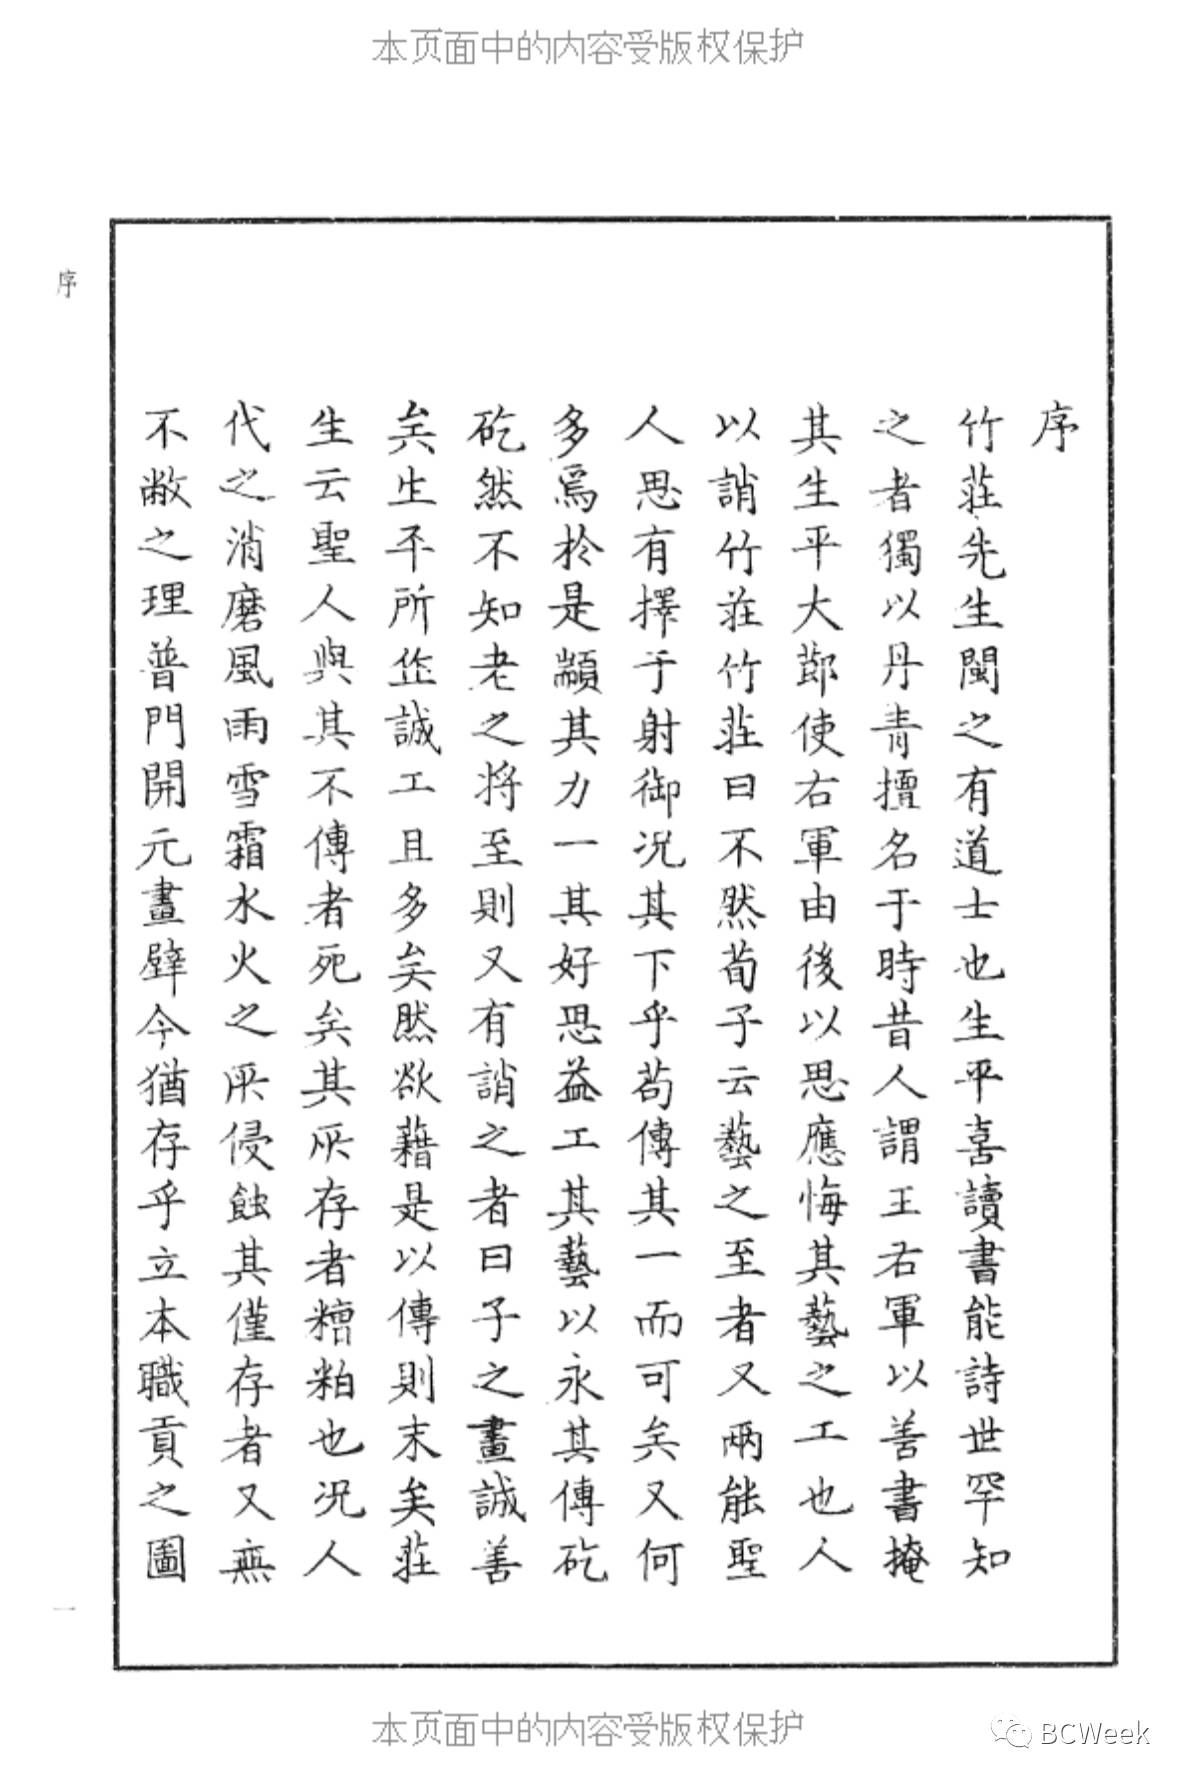 本页面中的内容受版权保护
序
序
竹莊先生閩之有道士也生平喜讀書能詩世罕知
之者獨以丹青擅名于時昔人謂王右軍以善書掩
其生平大節使右軍由後以思應悔其藝之工也人
以誚竹莊竹莊曰不然荀子云藝之至者又兩能聖
人思有擇于射御况其下乎苟傳其一而可矣又何
多焉於是顓其力一其好思益工其藝以永其傳矻
矻然不知老之将至則又有誚之者曰子之畫誠善
矣生平所作誠工且多矣然欲藉是以傳則末矣莊
生云聖人與其不傳者死矣其所存者糟粕也况人
代之消磨風雨雪霜水火之所侵蝕其僅存者又無
不敝之理普門開元畫壁今猶存乎立本職貢之圖
一
本页面中的内容受版权保护
BCWeek